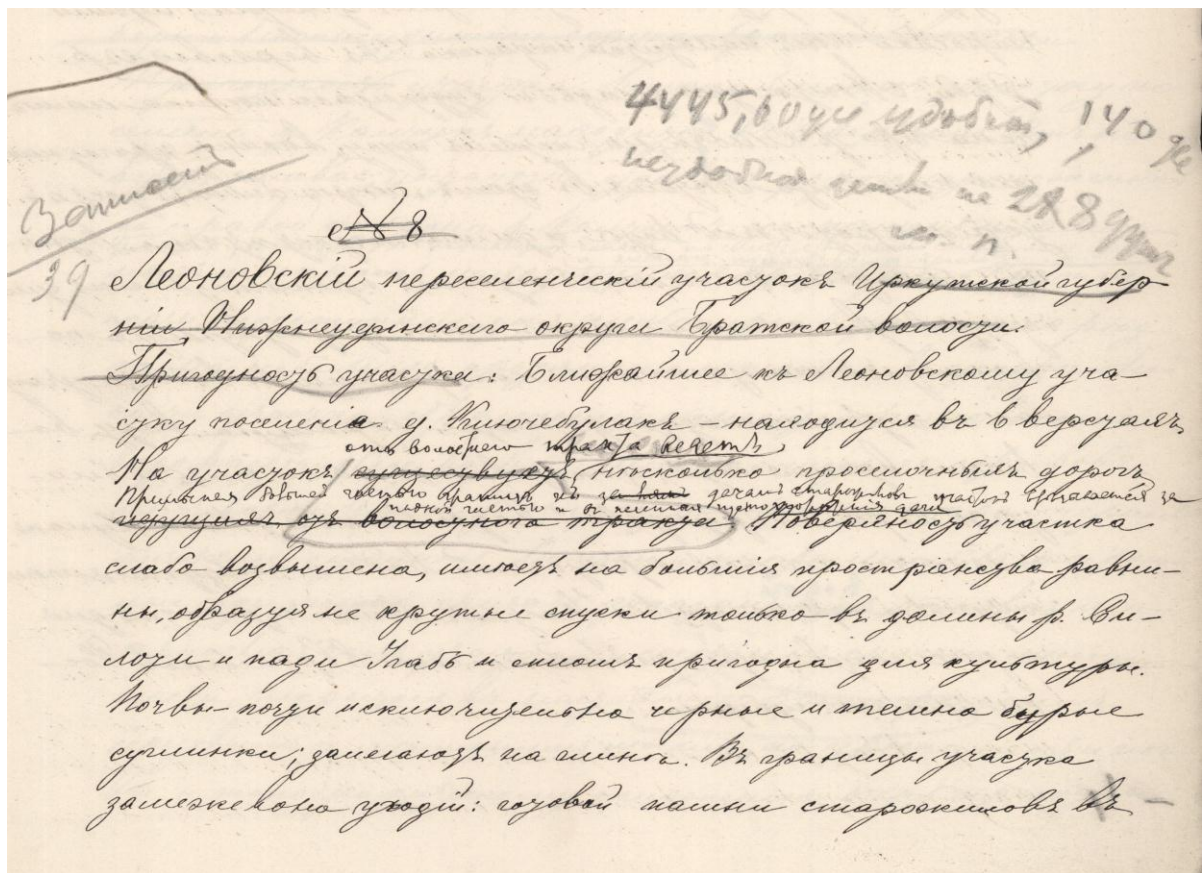 4445,60 удобной, 140
неудобной 228
39
№ 8
Леоновскій переселенческій участокъ Иркутской губер-
ніи Нижнеудинскаго округа Братской волости.
Пригодность участка: Ближайшее къ Леоновскому уча-
стку поселеніе д. Ключебулакъ – находится въ 6 верстахъ
отъ волостного тракта ведетъ
На участокъ существуютъ нѣсколько проселочныхъ дорогъ
идущихъ отъ волостного тракта. Поверхность участка
слабо возвышена, имѣетъ на большія пространства равни-
ны, образуя не крутые спуски только въ долины р. Ви-
лочи и пади и сплошь пригодна для культуры.
Почвы – почти исключительно черные и темно бурые
суглинки; залегаютъ на глинѣ. Въ границы участка
замежевано угодій: готовой пашни старожиловъ въ –